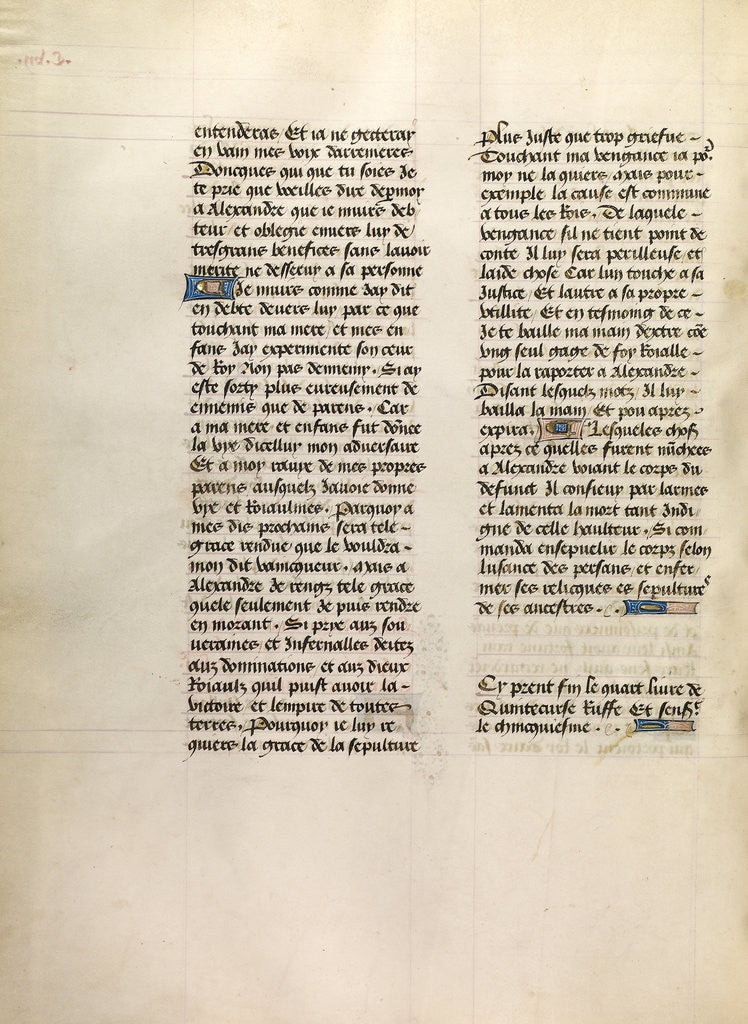 entenderas Et ia ne gecteray
en vain mes voix darremeres
Doncques qui que tu soies Je
te prie que vueilles dire de par moy
a Alexandre que ie muirs deb
teur et oblegie enuers luy de
tresgrans benefices sans lauoir
merite ne desseruy a sa personne
Je muirs comme Jay dit
en debte deuers luy par ce que
touchant ma mere et mes en
fans Jay experimente son ceur
de Roy Non pas dennemy. Si ay
este sorty plus eureusement de
ennemis que de parens. Car
a ma mere et enfans fut dōnee
la vye dicelluy mon aduersaire
Et a moy rauye de mes propres
parens ausquelz Jauoie donne
vye et Roiaulmes. Parquoy a
mes dis prochains sera tele
grace rendue que le vouldra
mon dit vaincqueur. Mais a
Alexandre Je rengz tele grace
quele seulement Je puis rendre
en morant. Si prye aux sou
ueraines et Infernalles deitez
aux dominations et aux dieux
Roiaulx quil puist auoir la
victoire et lempire de toutes
terres. Pourquoy ie luy re
quiers la grace de la sepulture
Plus Juste que trop griefue
Touchant ma vengance ia po~
moy ne la quiers Mais pour
exemple la cause est commune
a tous les Rois. De laquele
vengance sil ne tient point de
conte Il luy sera perilleuse et
laide chose Car lun touche a sa
Justice Et lautre a sa propre
vtillite Et en tesmoing de ce
Je te baille ma main dextre cōe
vng seul gage de foy Roialle
pour la raporter a Alexandre
Disant lesquelz motz Il luy
bailla la main Et pou apres
expira. Lesqueles chos~
apres ce quelles furent nūchees
a Alexandre voiant le corps du
defunct Il confieuy par larmes
et lamenta la mort tant Indi
gne de celle haulteur. Si com
manda ensepuelir le corps selon
lusance des persans et enfer
mer ses relicques es sepultures
de ses ancestres.
Cy prent fin le quart liure de
Quintecurse Ruffe Et sens~
le chincquiesme.